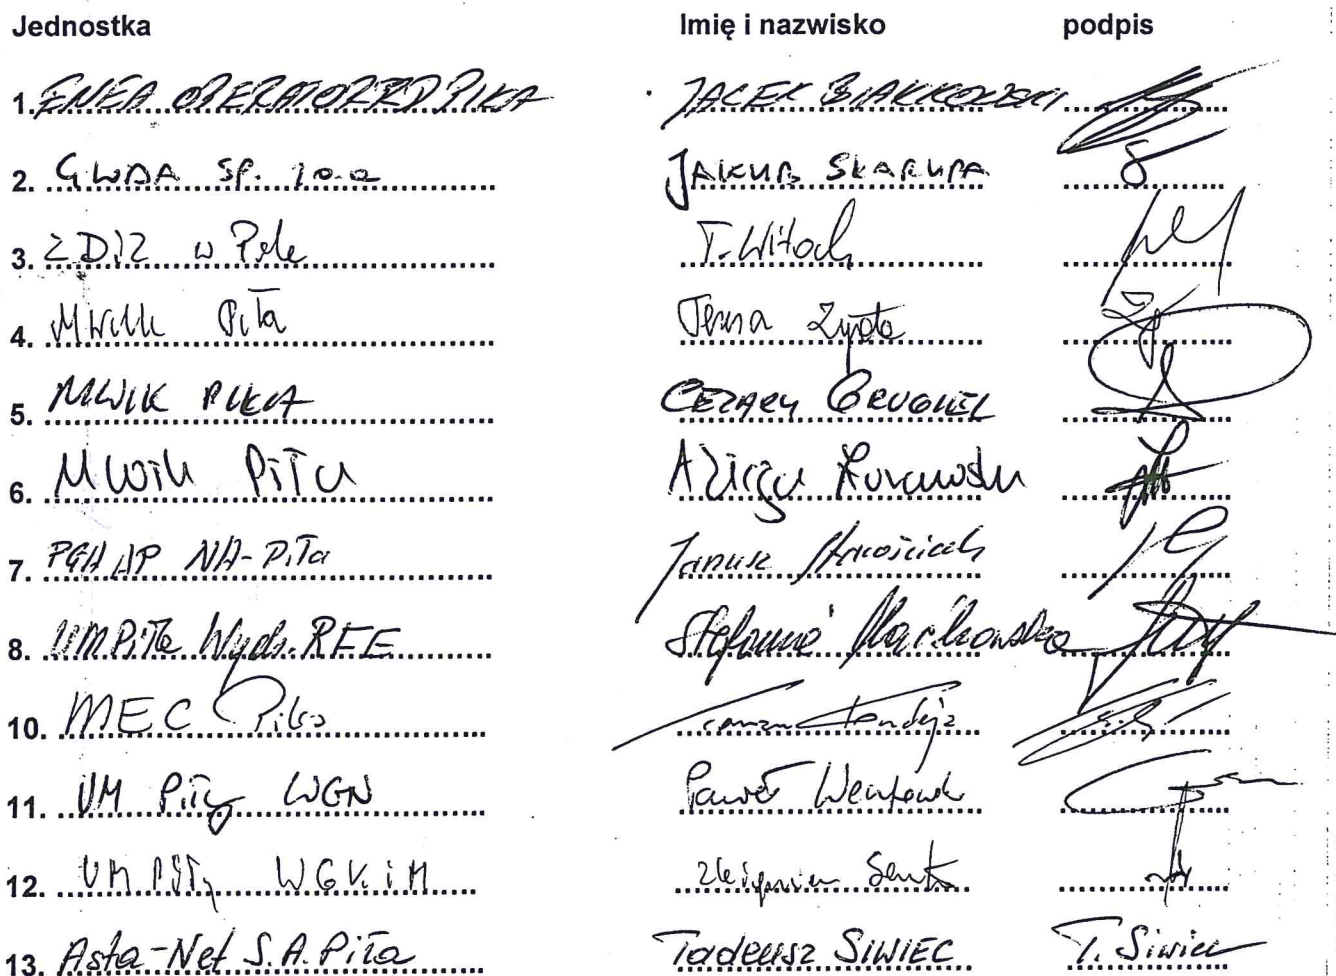 Jednostka Imię i nazwisko podpis
1. ENEA OPERATOR RD PIŁA JACEK BIAŁKOWSKI
2. GWDA SP. z o.o JAKUB SKARUPA
3. ZDiZ w Pile T. Witoch
4. MWiK Piła Teresa
5. MWIK PIŁA CEZARY
6. MWiK Piła Alicja
7. Piła Janusz
8. UM Piła Wydz. Stefania
10. MEC Piła
11. UM Piły WGN Paweł
12. UM Piły WGKiM Zbigniew
13. Asta-Net S.A. Piła Tadeusz SIWIEC T. Siwiec